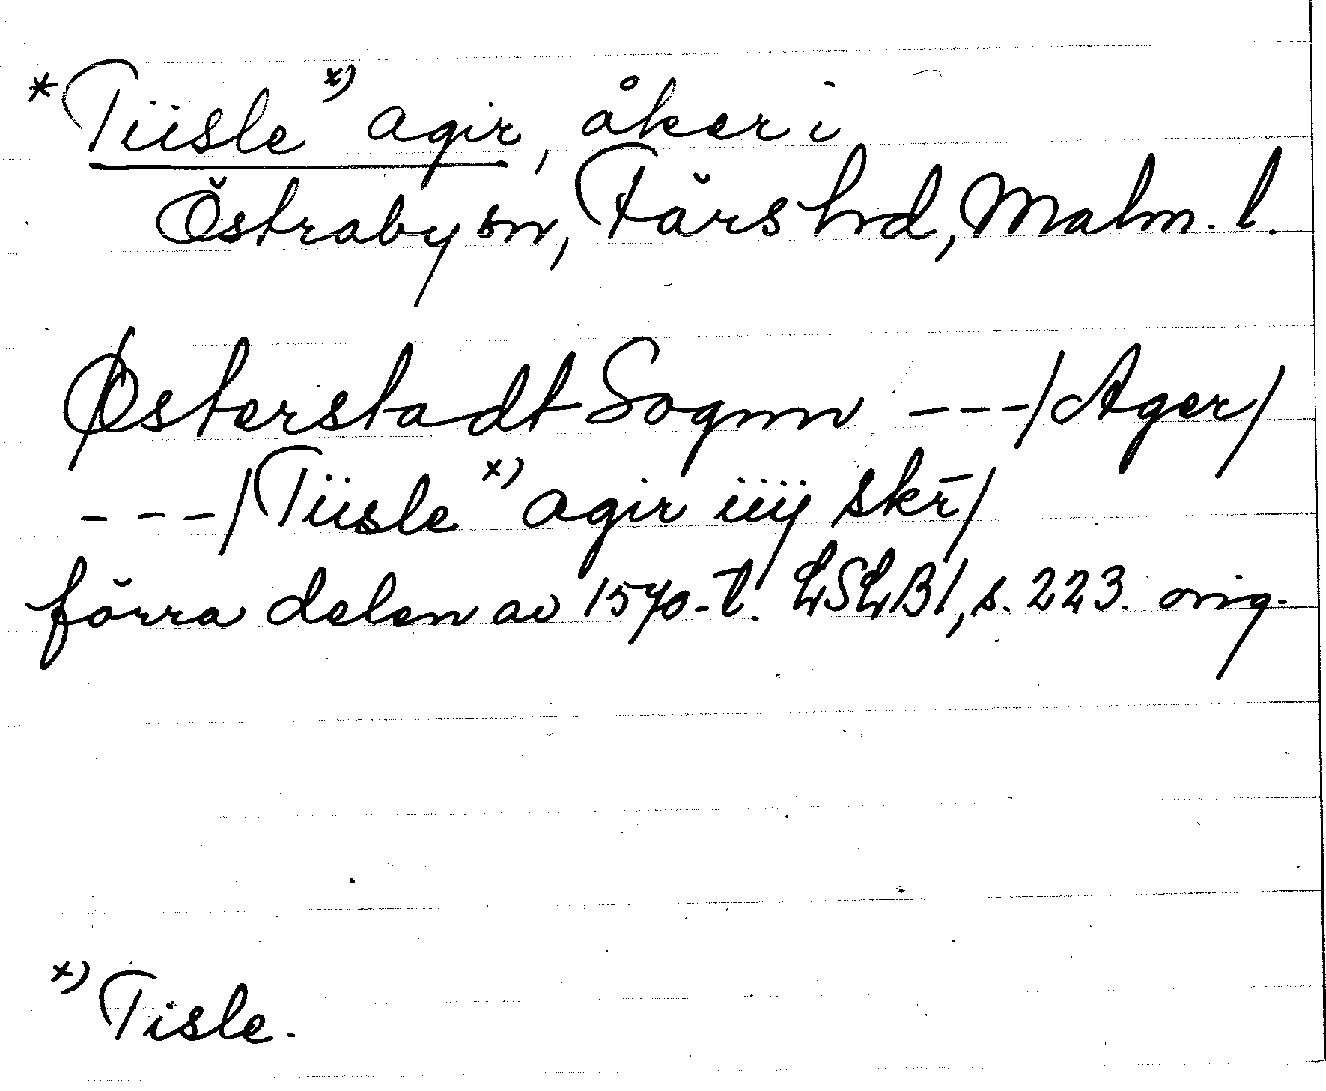 *Tiisle x) agir, åker i
Östraby sn, Färs hrd, Malm. l.
Østerstadt Sognn ---/Ager/
---/Tiisle x) agir iiij skr̄/
förra delen av 1570-t. LSLB1, s. 223. orig.
x) Tisle.